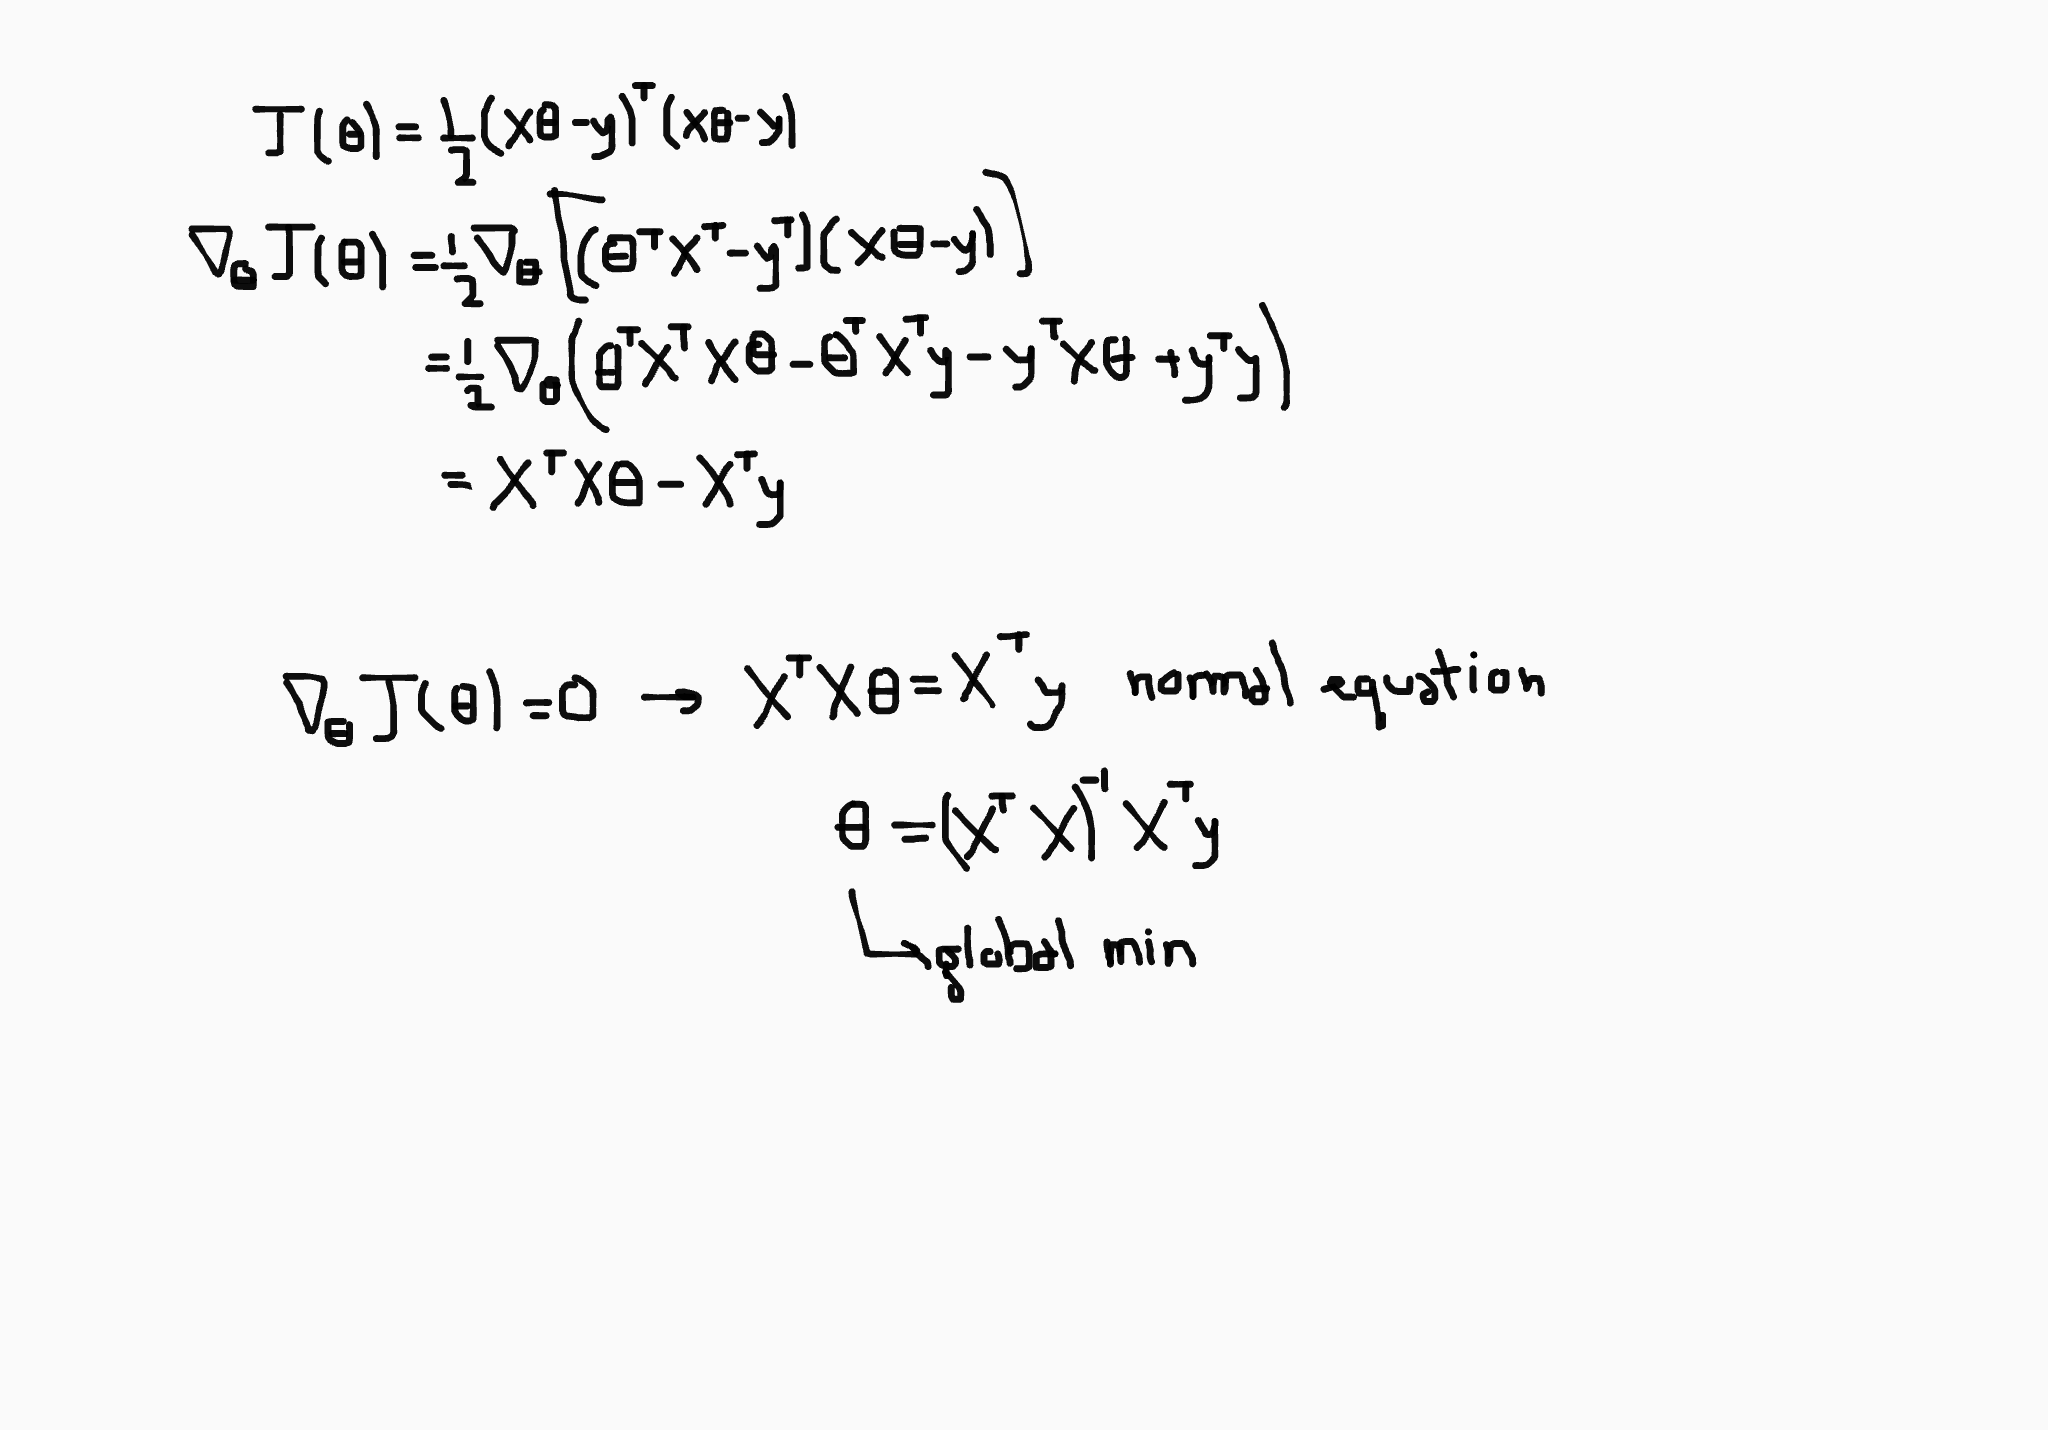 J(θ) = 1/2 (Xθ - y)ᵀ (xθ - y)
∇_θ J(θ) = 1/2 ∇_θ [(θᵀXᵀ - yᵀ)(Xθ - y)]
= 1/2 ∇_θ (θᵀXᵀXθ - θᵀXᵀy - yᵀXθ + yᵀy)
= XᵀXθ - Xᵀy
∇_θ J(θ) = 0 → XᵀXθ = Xᵀy normal equation
θ = (XᵀX)⁻¹ Xᵀy
↳ global min